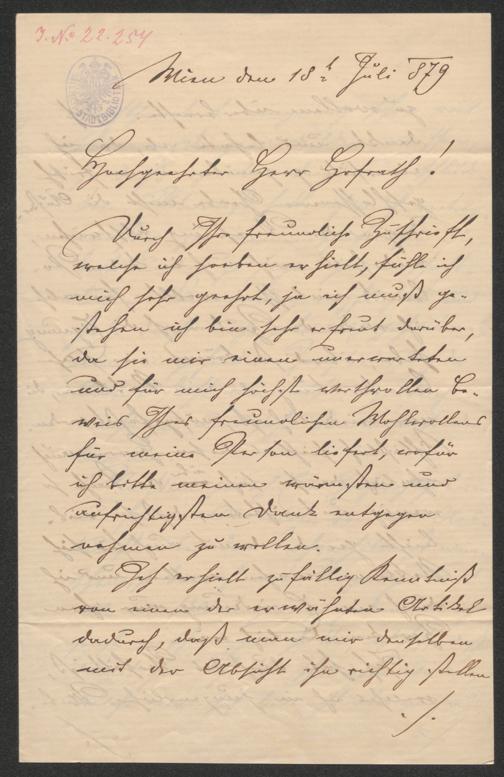 J. No 22.254
STADTBIBLIOTHEK
Wien den 18t Juli 879
Hochgeehrter Herr Hofrath!
Durch Ihre freundliche Zuschrift,
welche ich soeben erhielt, fühle ich
mich sehr geehrt, ja ich muß ge-
stehen ich bin sehr erfreut darüber,
da sie mir einen unerwarteten
und für mich höchst werthvollen Be-
weis Ihres freundlichen Wohlwollens
für meine Person liefert, wofür
ich bitte meinen wärmsten und
aufrichtigsten Dank entgegen
nehmen zu wollen.
Ich erhielt zufällig Kenntniß
von einen der erwähnten Artikel
dadurch, daß man mir denselben
mit der Absicht ihn richtig stellen
./.